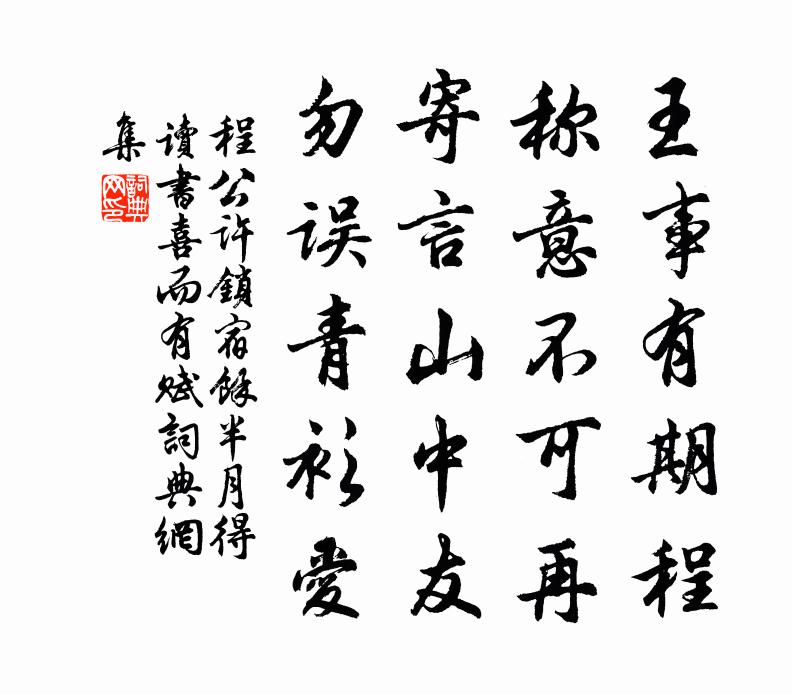 王事有期程
称意不可再
寄言山中友
勿误青衫愛
程公许鎖宿餘半月得
讀書喜而有赋詞典網
集
詞典
网印